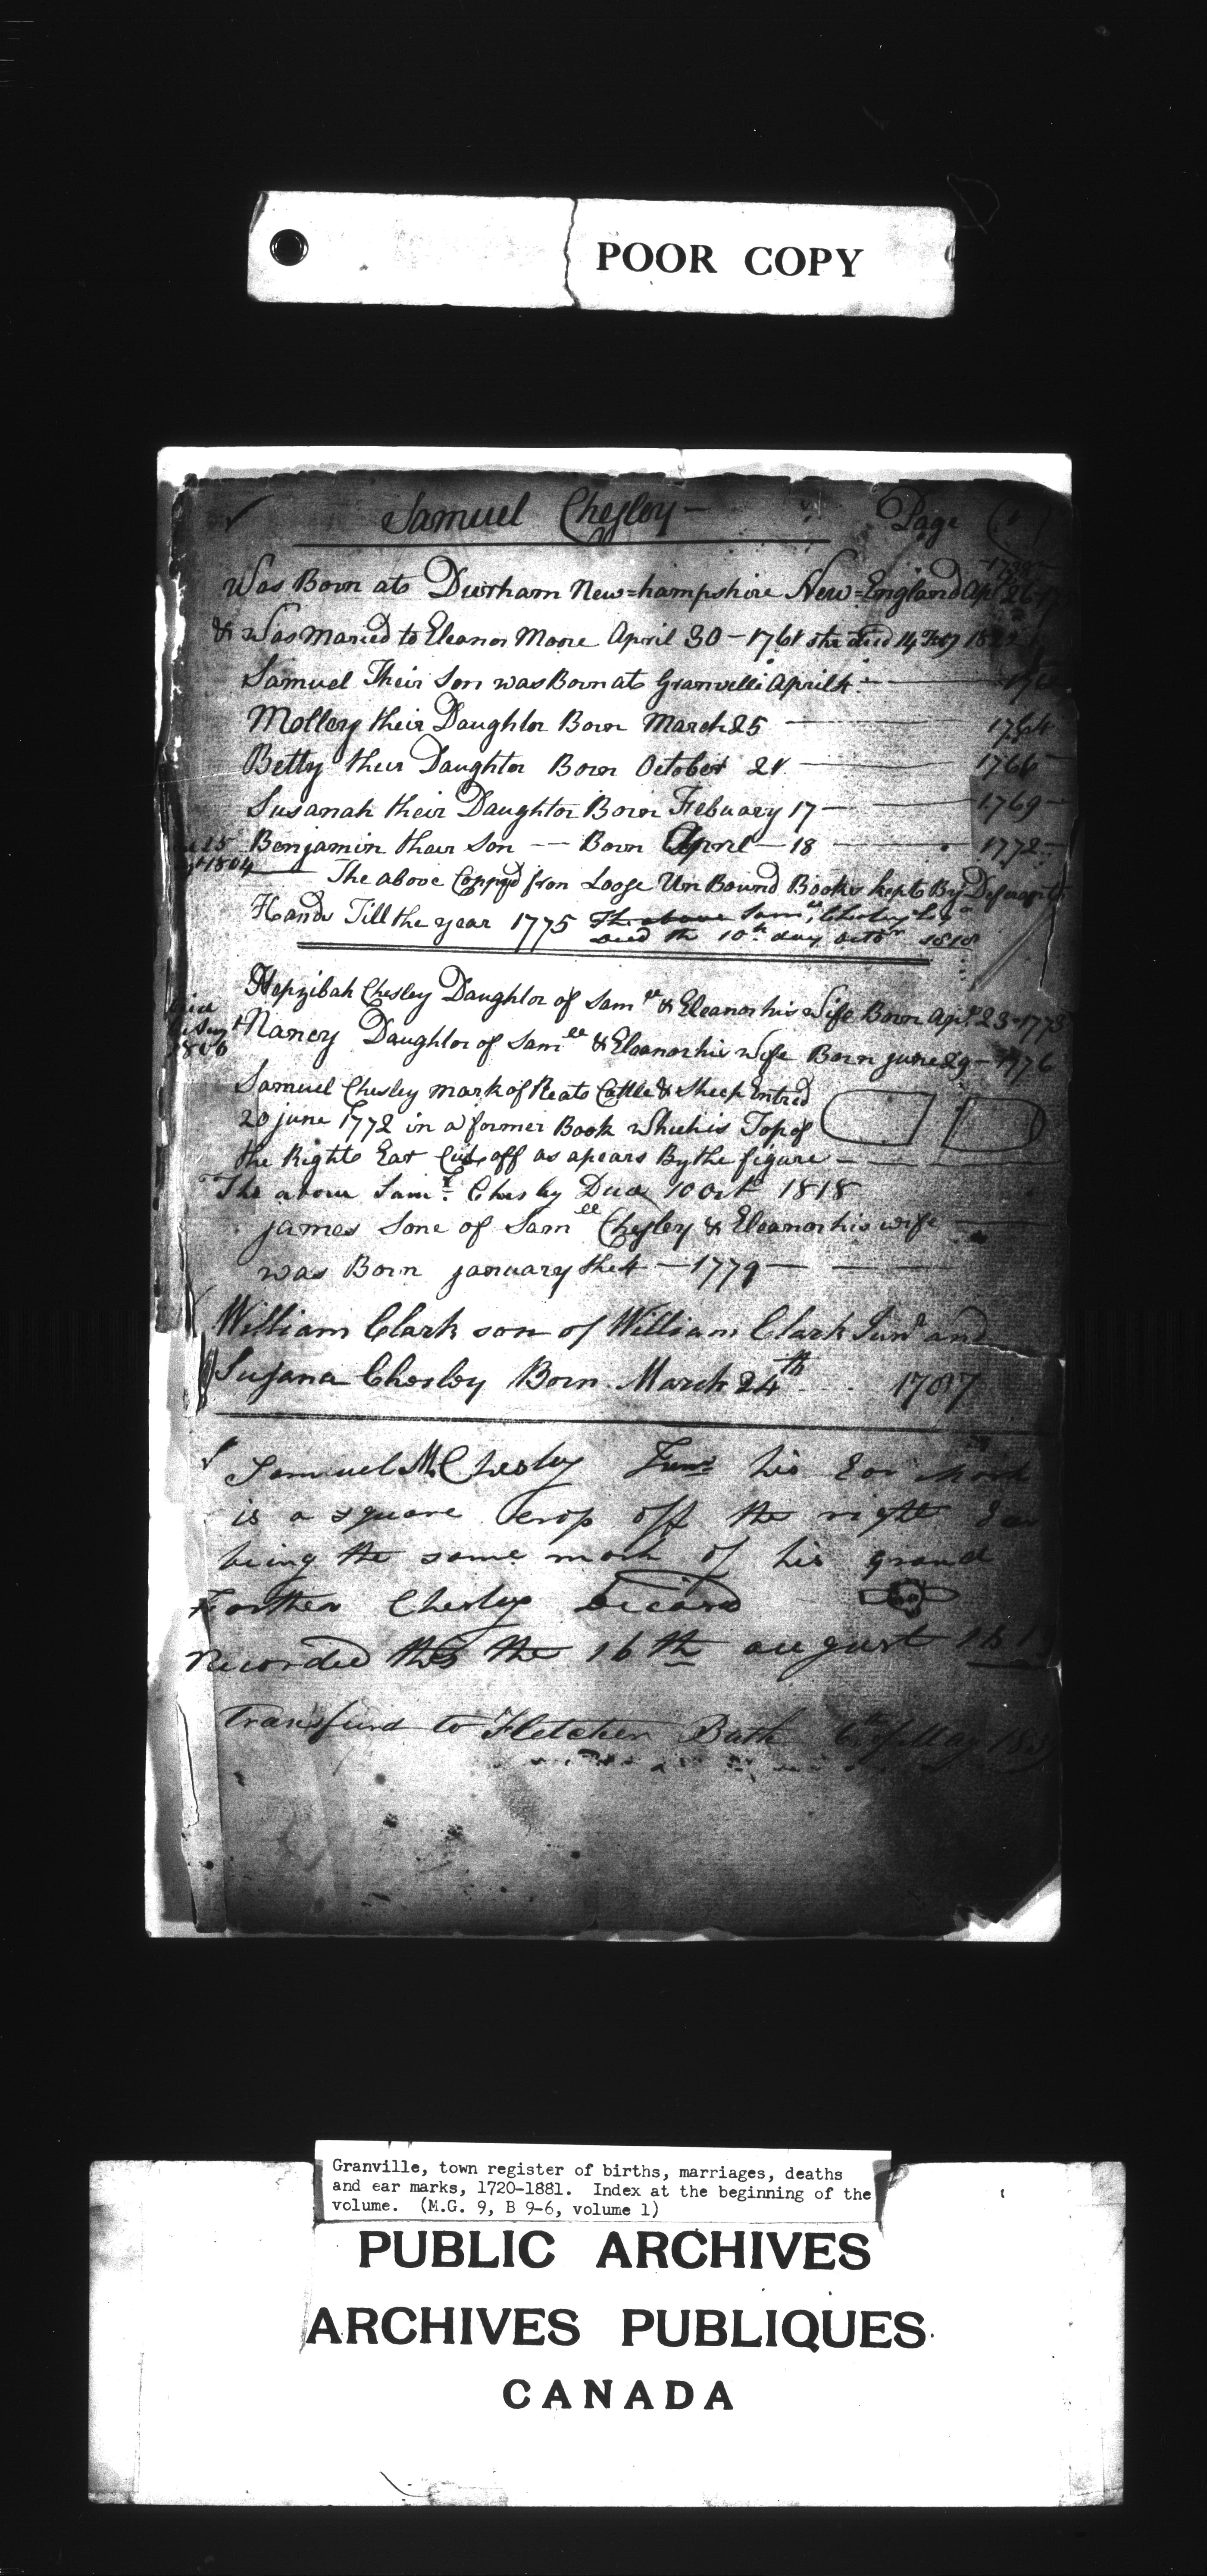 POOR COPY
Samuel Chesley - Page (1
1738
Was Born at Durham New=hampshire New=England Apl 26
& Was Maried to Eleanor Moore April 30 - 1761 she died 14 18
Samuel Their Son was Born at Granville April 4 -
Molley their Daughter Born March 25 - 1764
Betty their Daughter Born October 21 - 1766
Susanah their Daughter Born Febuary 17 - 1769 -
25 Benjamin their Son -- Born April - 18 - 1772 -
1804 The above Coppyd from Loose Un Bound Books kept By
Hands Till the year 1775 The above Samll Chesley
Died the 10th day Octor 1818
Hepzibah Chesley Daughter of Samll & Eleanor his Wife Born Apl 23 - 1773
Nancy Daughter of Samll & Eleanor his Wife Born june 29 - 1776
1806
Samuel Chesley mark of Neats Cattle & Sheep Entred
20 june 1772 in a former Book which is Top of
the Right Ear Cut off as apears By the figure -
The above Saml Chesley Died 10 Oct 1818
james Sone of Samll Chesley & Eleanor his wife
was Born january the 4 - 1779 -
William Clark son of William Clark Junr and
Susana Chesley Born March 24th 1787
Samuel M. Chesley Junr his Ear Mark
is a square Crop off the right Ear
being the same mark of his grand
Farther Chesley Diceasd
Recorded this the 16th august 181
Transfurd to Fletcher Bath 6th of May 183
Granville, town register of births, marriages, deaths
and ear marks, 1720-1881. Index at the beginning of the
volume. (M.G. 9, B 9-6, volume 1)
PUBLIC ARCHIVES
ARCHIVES PUBLIQUES
CANADA